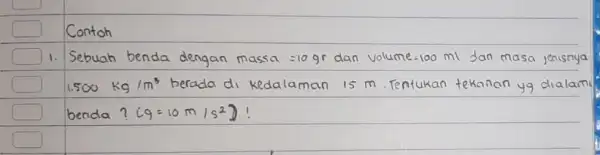 Contoh
1. Sebuah benda dengan massa =10 gr dan volume=100 ml dan masa jenisnya
1.500 kg /m³ berada di kedalaman 15 m. Tentukan tekanan yg dialami
benda ? (g = 10 m /s²) !